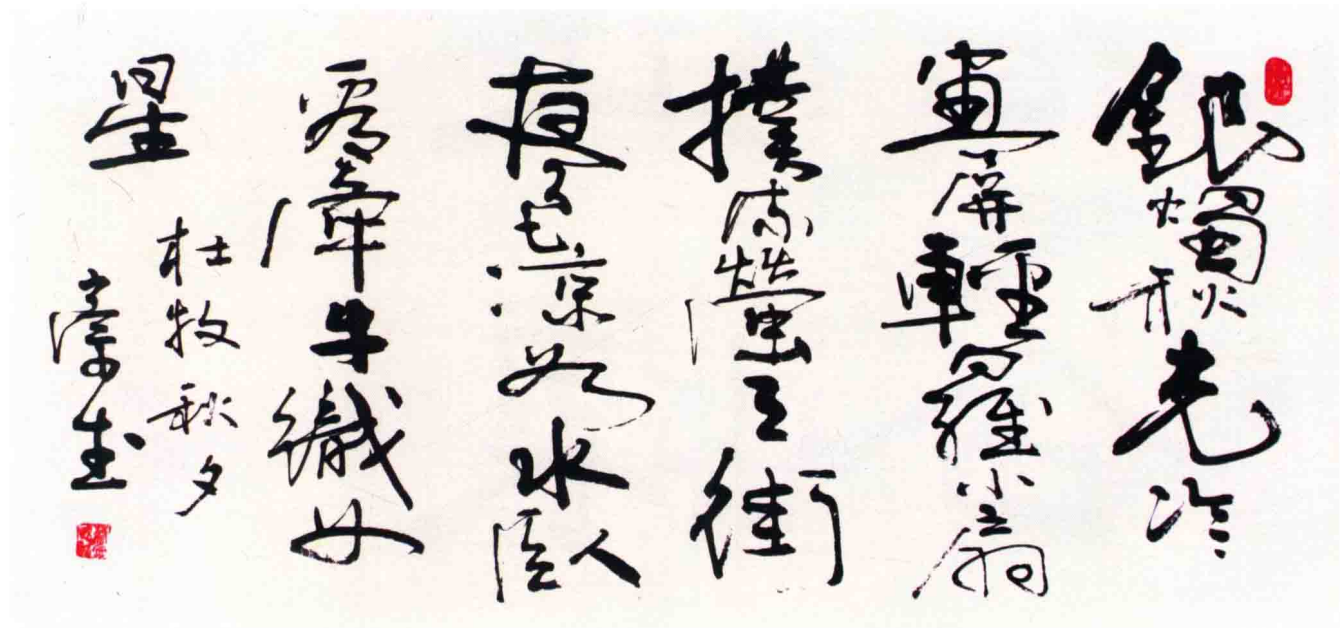 銀燭秋光冷
畫屏輕羅小扇
撲流螢天街
夜色凉如水臥
看牽牛織女
星
杜牧秋夕